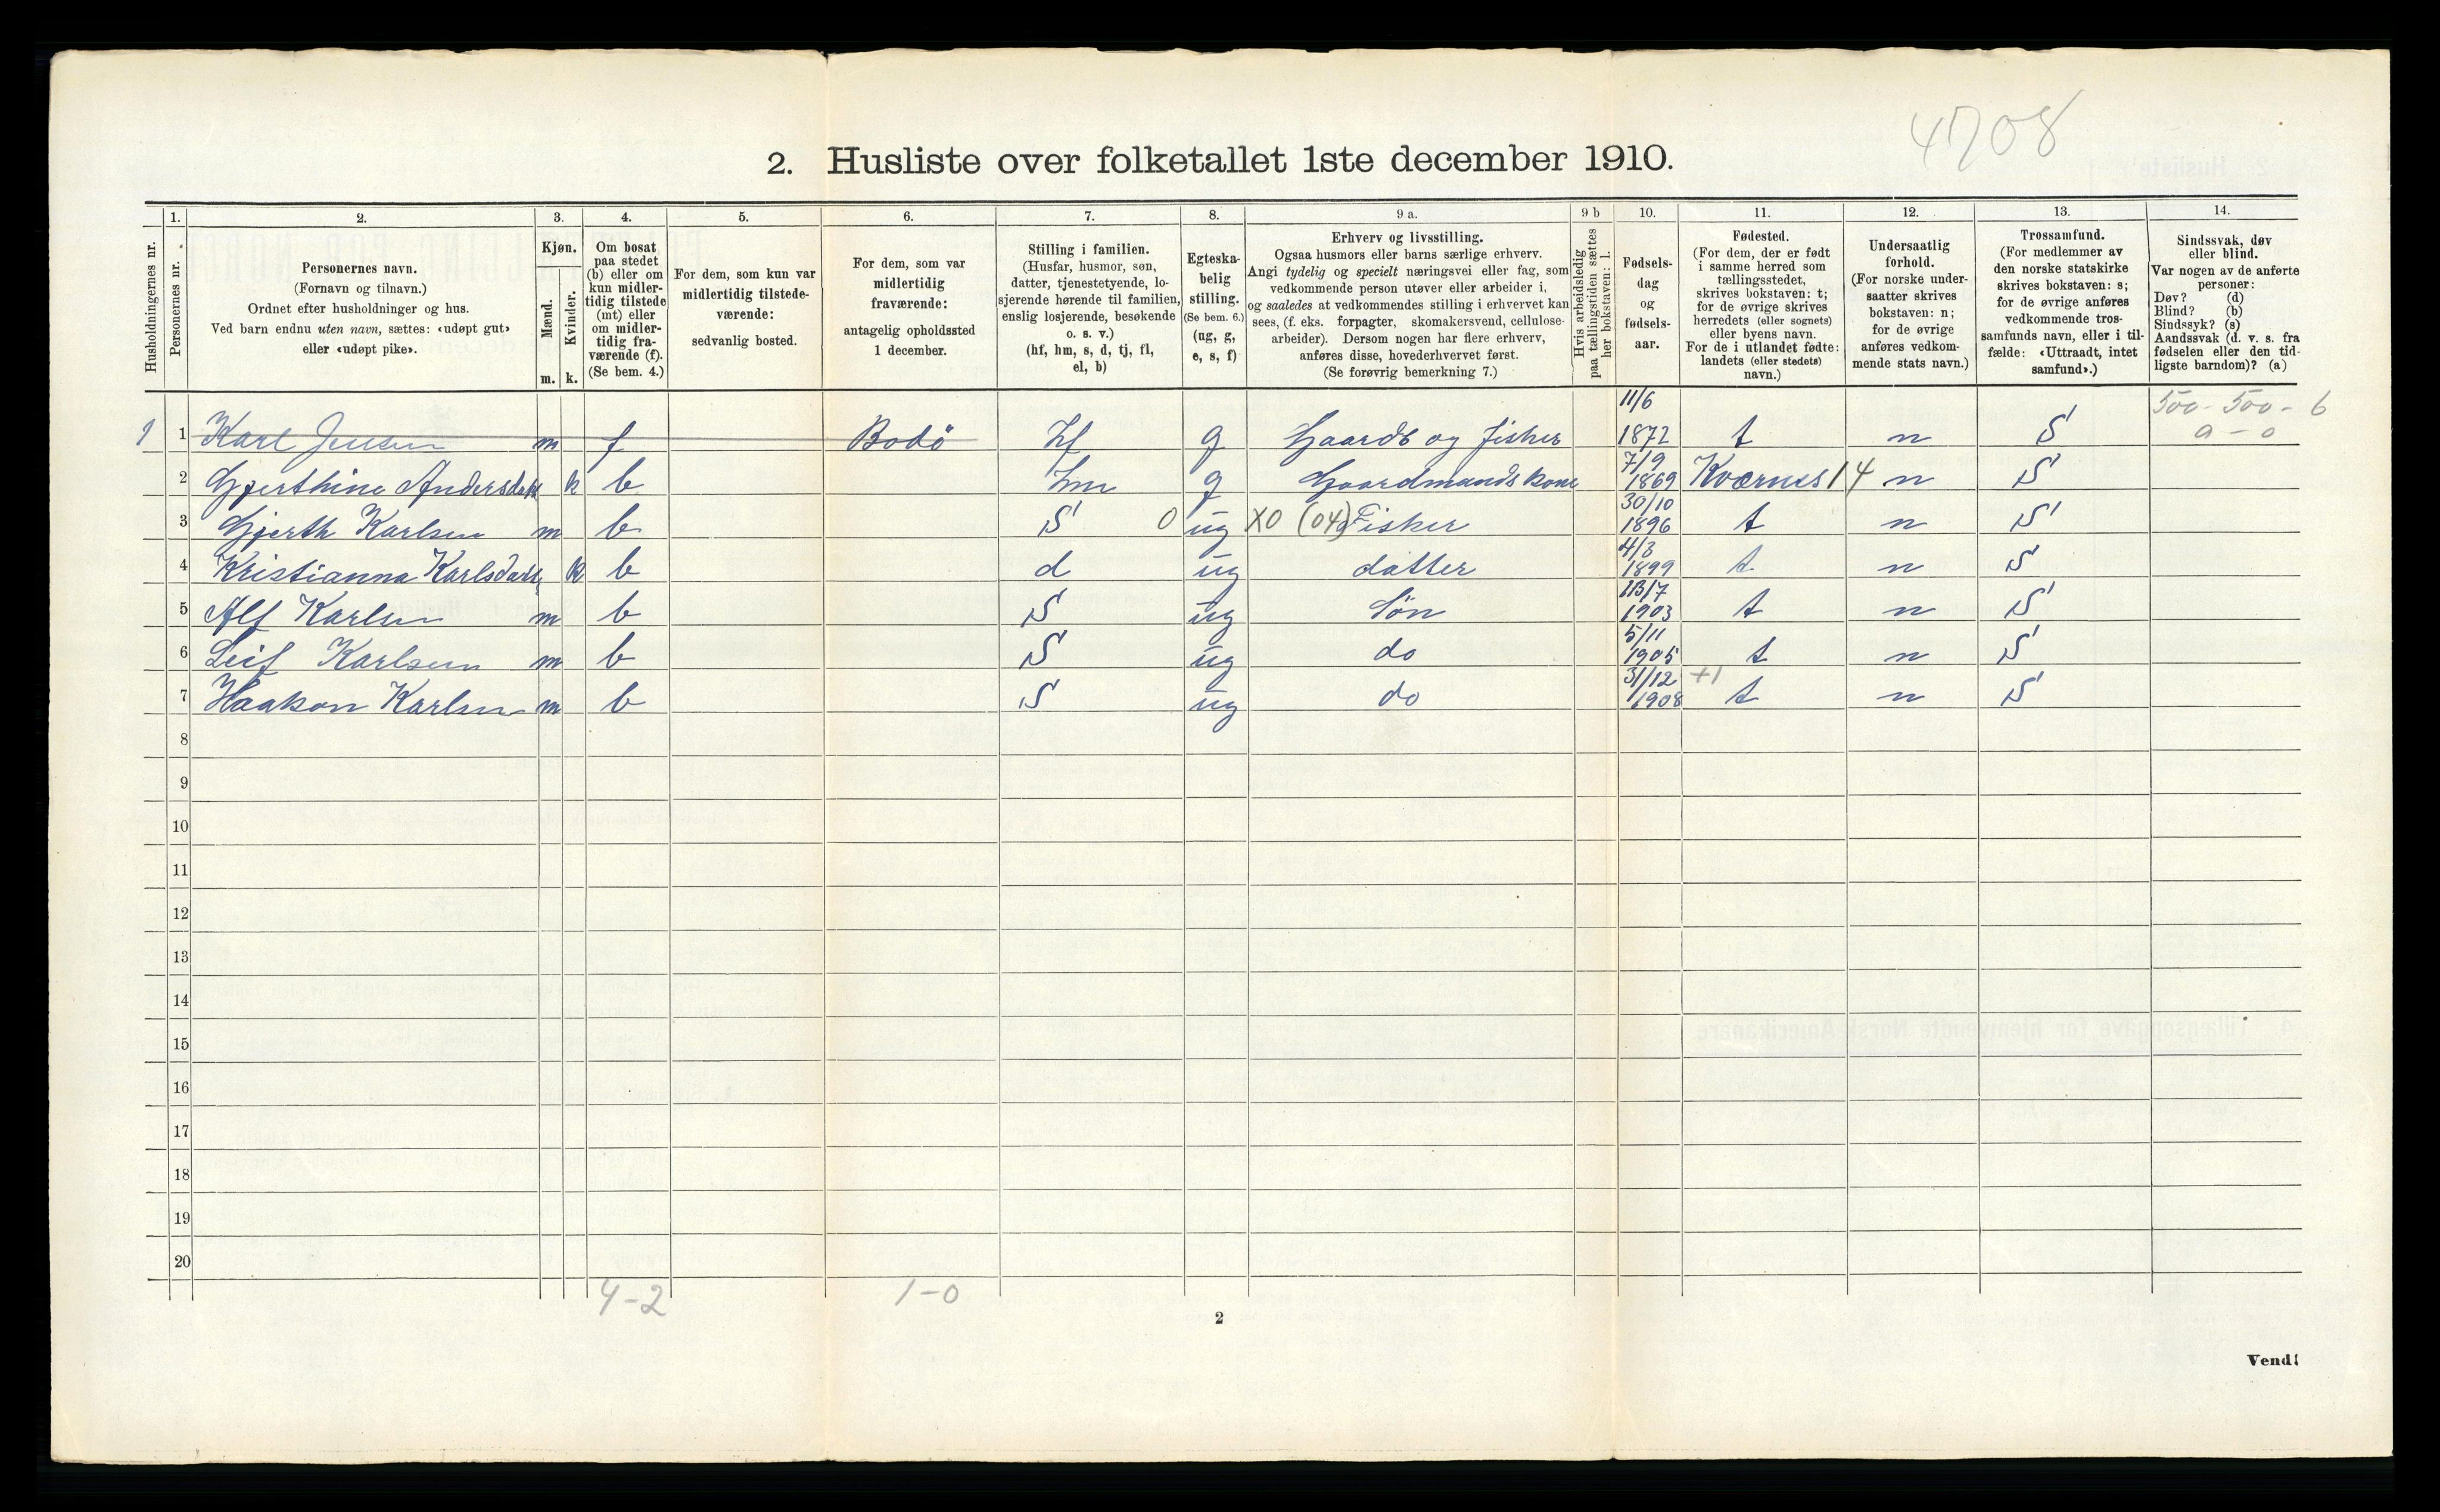 4708
2. Husliste over folketallet 1ste december 1910.
Husholdningernes nr.
1.
Personernes nr.
2.
Personernes navn.
(Fornavn og tilnavn.)
Ordnet efter husholdninger og hus.
Ved barn endnu uten navn, sættes: «udøpt gut»
eller «udøpt pike».
3.
Kjøn.
Mænd.
Kvinder.
m. k.
4.
Om bosat
paa stedet
(b) eller om
kun midler-
tidig tilstede
(mt) eller
om midler-
tidig fra-
værende (f).
(Se bem. 4.)
5.
For dem, som kun var
midlertidig tilstede-
værende:
sedvanlig bosted.
6.
For dem, som var
midlertidig
fraværende:
antagelig opholdssted
1 december.
7.
Stilling i familien.
(Husfar, husmor, søn,
datter, tjenestetyende, lo-
sjerende hørende til familien,
enslig losjerende, besøkende
o. s. v.)
(hf, hm, s, d, tj, fl,
el, b)
8.
Egteska-
belig
stilling.
(Se bem. 6.)
(ug, g,
e, s, f)
9 a.
Erhverv og livsstilling.
Ogsaa husmors eller barns særlige erhverv.
Angi tydelig og specielt næringsvei eller fag, som
vedkommende person utøver eller arbeider i,
og saaledes at vedkommendes stilling i erhvervet kan
sees, (f. eks. forpagter, skomakersvend, cellulose-
arbeider). Dersom nogen har flere erhverv,
anføres disse, hovederhvervet først.
(Se forøvrig bemerkning 7.)
9 b
Hvis arbeidsledig
paa tællingstiden sættes
her bokstaven: l.
10.
Fødsels-
dag
og
fødsels-
aar.
11.
Fødested.
(For dem, der er født
i samme herred som
tællingsstedet,
skrives bokstaven: t;
for de øvrige skrives
herredets (eller sognets)
eller byens navn.
For de i utlandet fødte:
landets (eller stedets)
navn.)
12.
Undersaatlig
forhold.
(For norske under-
saatter skrives
bokstaven: n;
for de øvrige
anføres vedkom-
mende stats navn.)
13.
Trossamfund.
(For medlemmer av
den norske statskirke
skrives bokstaven: s;
for de øvrige anføres
vedkommende tros-
samfunds navn, eller i til-
fælde: «Uttraadt, intet
samfund».)
14.
Sindssvak, døv
eller blind.
Var nogen av de anførte
personer:
Døv? (d)
Blind? (b)
Sindssyk? (s)
Aandssvak (d. v. s. fra
fødselen eller den tid-
ligste barndom)? (a)
500 - 500 - 6
a - 0
1 1 Karl Jensen m f Bodö hf g Gaardb og fisker 11/6 1872 t n S
2 Gjerthine Andersdatt k b hm g Gaardmandskone 7/9 1869 Kværnes 14 n S
3 Gjerth Karlsen m b S 0 ug X0 (04) Fisker 30/10 1896 t n S
4 Kristianna Karlsdatt k b d ug datter 4/3 1899 t n S
5 Alf Karlsen m b S ug Sön 13/7 1903 t n S
6 Leif Karlsen m b S ug do 5/11 1905 t n S
7 Haakon Karlsen m b S ug do 31/12 1908 +1 t n S
8
9
10
11
12
13
14
15
16
17
18
19
20
4-2 1-0
2
Vend!